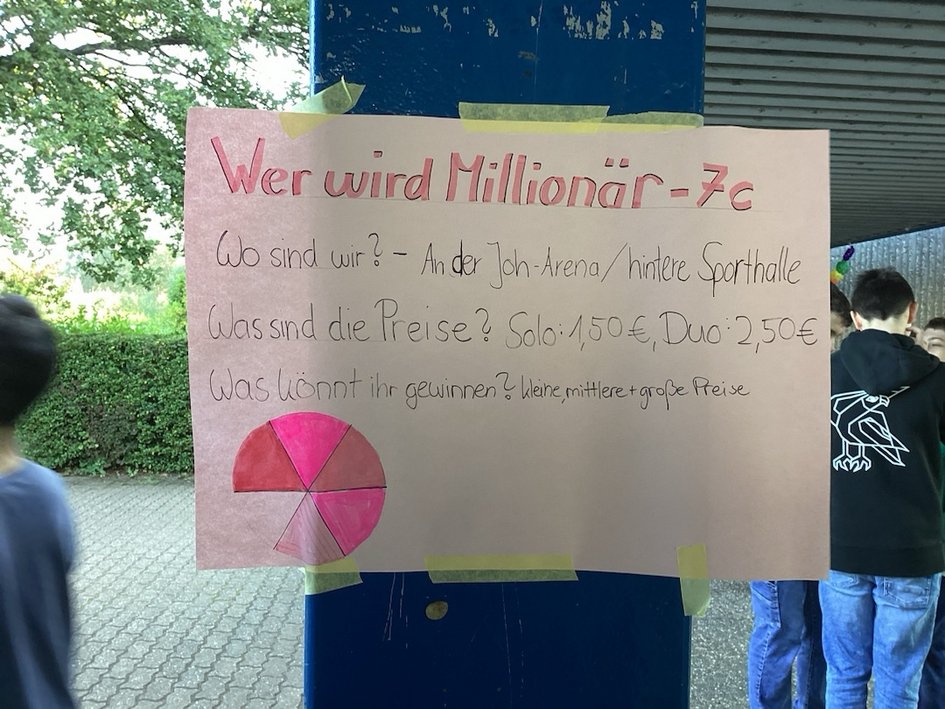 Wer wird Millionär - 7c
Wo sind wir? - An der Joh-Arena/hintere Sporthalle
Was sind die Preise? Solo: 1,50€, Duo: 2,50€
Was könnt ihr gewinnen? kleine, mittlere + große Preise